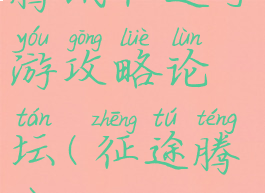 yóu gōng lüè lùn
游攻略论
tán zhēng tú téng
坛(征途腾